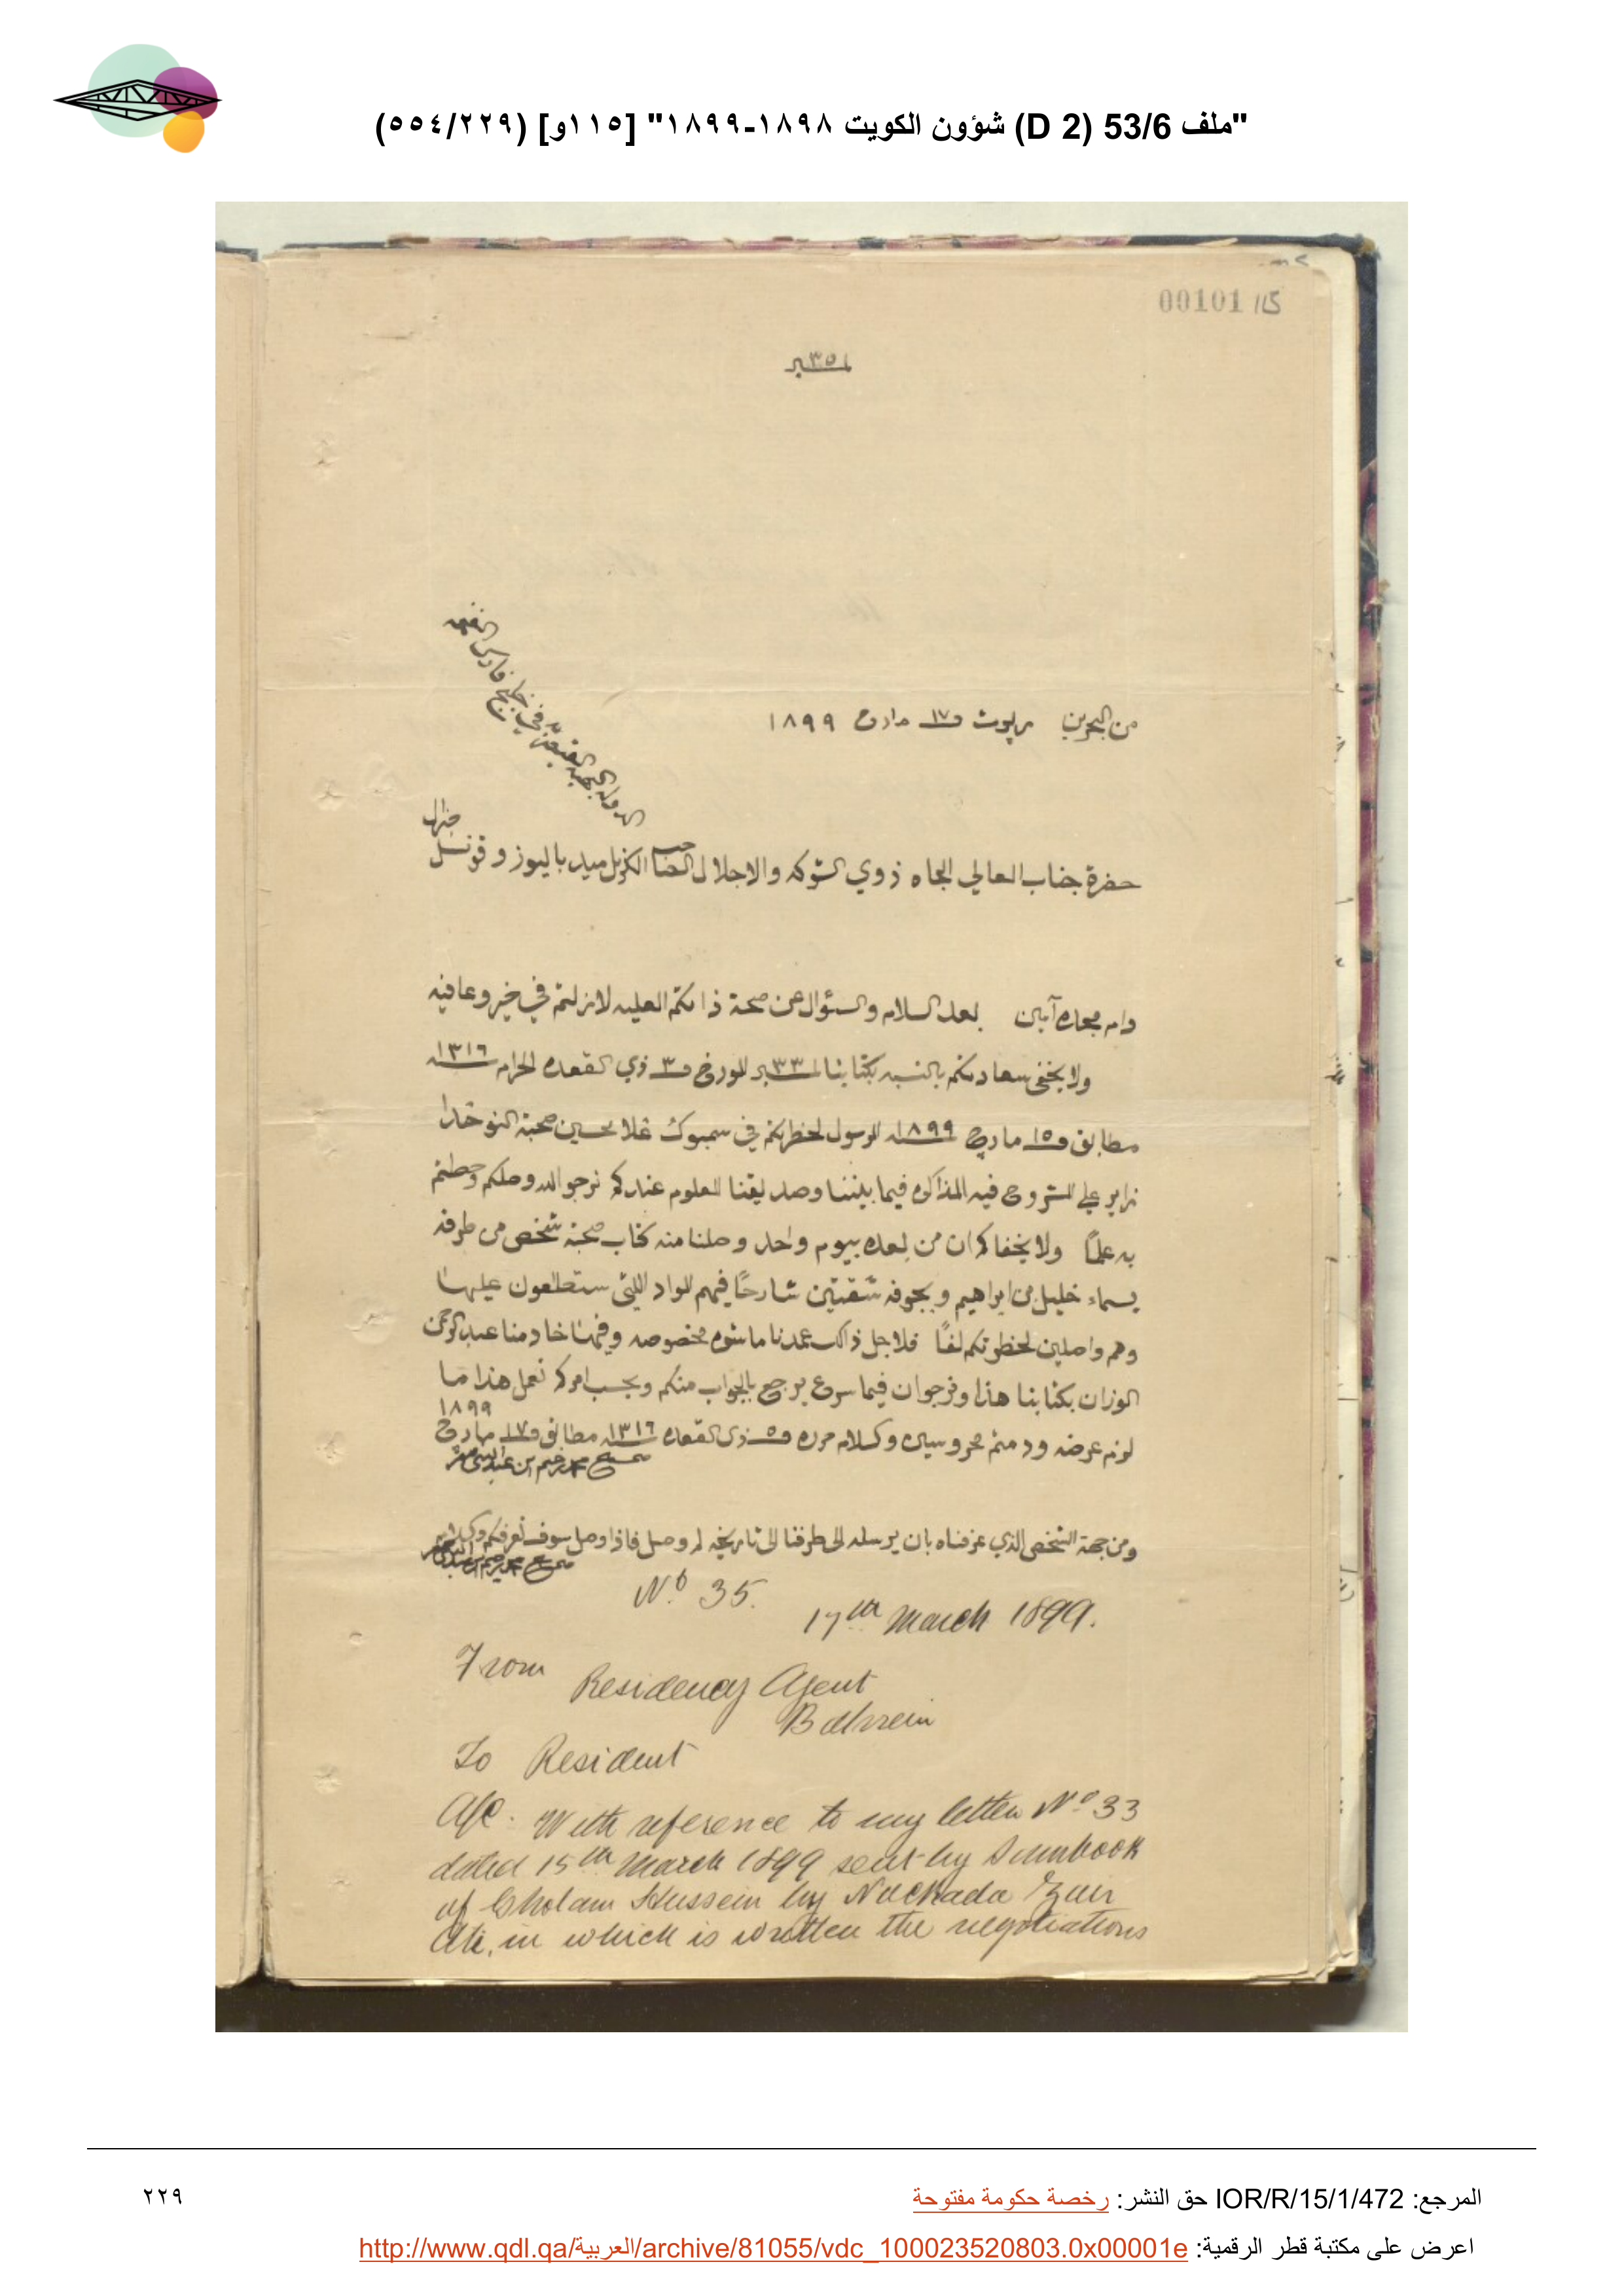 "ملف 53/6 (D 2) شؤون الكويت ١٨٩٨-١٨٩٩" [١١٥و] (٥٥٤/٢٢٩)
00101 115
نمبر ٣٥
من البحرين بريوت و١٧ مارج ١٨٩٩
الدوله البهيه القيصريه في خليج فارس الفخيم
حضرة جناب العالي الجاه ذوي الشوكه والاجلال الصاحب الكرنل ميد باليوز وقونسل جنرال
دام مجده آمين بعد السلام والسؤال عن صحة ذاتكم العليه لازلتم في خير وعافيه
ولا يخفى سعادتكم بالنسبه بكتابنا نمبر ٣٣ المورخ و٣ ذي القعده الحرام ١٣١٦
مطابق و١٥ مارچ ١٨٩٩ المرسول لحظرتكم في سمبوك غلامحسين صحبة النوخدا
زاير علي المشروح فيه المذاكره فيما بيننا وصديقنا المعلوم عندكم نرجو الله وصلكم وحطتم
به علمًا ولا يخفاكم ان من بعده بيوم واحد وصلنا منه كتاب صحبة شخص من طرفه
يسماء خليل بن ابراهيم وبجوفه شقتين شارحًا فيهم المواد اللتي ستطلعون عليها
وهم واصلين لحظرتكم لفًا فلاجل ذالك عمدنا ماشوه مخصوصه وفيها خادمنا عبدالرحمن
الوزان بكتابنا هذا ونرجوا ان فيما سرع يرجع بالجواب منكم وبحسب امركم نعمل هذا ما
لزم عرضه ودمتم محروسين والسلام حرر و٥ ذي القعده ١٣١٦ مطابق و١٧ مارج ١٨٩٩
صحيح محمد رحيم بن عبدالنبي صفر
ومن جهة الشخص الذي عرفناه بان يرسله الى طرفنا الى تاريخه لم وصل فاذا وصل سوف نعرفكم والسلام
صحيح محمد رحيم بن عبدالنبي صفر
No. 35.
17th March 1899.
From
Residency Agent
Bahrein
To Resident
A/C. With reference to my letter No 33
dated 15th March 1899 sent by Sumbook
of Gholam Hussein by Nackada Zair
Ali, in which is written the negotiations
المرجع: IOR/R/15/1/472 حق النشر: رخصة حكومة مفتوحة
٢٢٩
اعرض على مكتبة قطر الرقمية: http://www.qdl.qa/العربية/archive/81055/vdc_100023520803.0x00001e